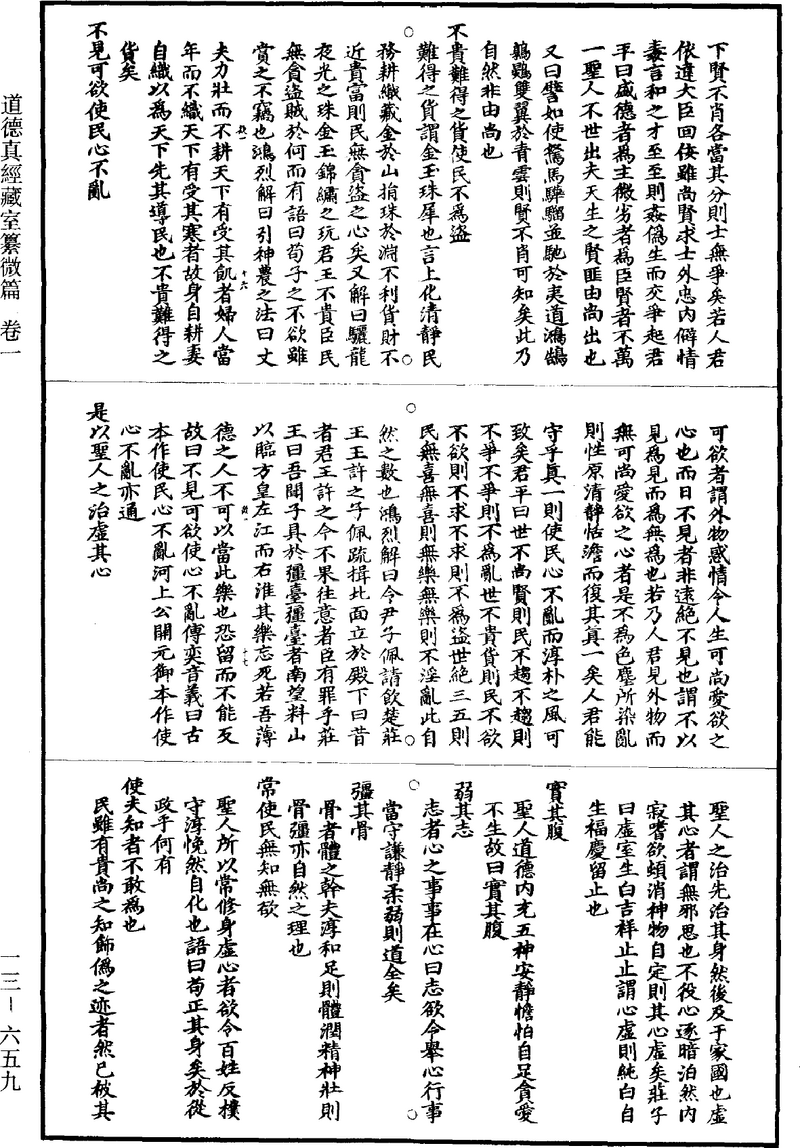 下賢不肖各當其分則士無爭矣若人君
依違大臣回佞雖尚賢求士外忠內僻情
毒言和之才至至則姦僞生而交爭起君
平曰盛德者爲主微劣者爲臣賢者不萬
一聖人不世出夫天生之賢匪由尚出也
又曰譬如使駑馬驊騮並馳於夷道鴻鵠
鷦鷃雙翼於青雲則賢不肖可知矣此乃
自然非由尚也
不貴難得之貨使民不爲盜
難得之貨謂金玉珠犀也言上化清靜民
務耕織藏金於山捐珠於淵不利貨財不
近貴富則民無貪盜之心矣又解曰驪龍
夜光之珠金玉錦繡之玩君王不貴臣民
無貪盜賊於何而有語曰苟子之不欲雖
賞之不竊也鴻烈解曰引神農之法曰丈
夫力壯而不耕天下有受其飢者婦人當
年而不織天下有受其寒者故身自耕妻
自織以爲天下先其導民也不貴難得之
貨矣
不見可欲使民心不亂
可欲者謂外物惑情令人生可尚愛欲之
心也而曰不見者非遠絕不見也謂不以
見爲見而爲無爲也若乃人君見外物而
無可尚愛欲之心者是不爲色塵所染亂
則性原清靜恬澹而復其真一矣人君能
守乎真一則使民心不亂而淳朴之風可
致矣君平曰世不尚賢則民不趨不趨則
不爭不爭則不爲亂世不貴貨則民不欲
不欲則不求不求則不爲盜世絕三五則
民無喜無喜則無樂無樂則不淫亂此自
然之數也鴻烈解曰令尹子佩請飲楚莊
王王許之子佩疏揖北面立於殿下曰昔
者君王許之今不果往意者臣有罪乎莊
王曰吾聞子具於彊臺彊臺者南望料山
以臨方皇左江而右淮其樂忘死若吾薄
德之人不可以當此樂也恐留而不能反
故曰不見可欲使心不亂傅奕音義曰古
本作使民心不亂河上公開元御本作使
心不亂亦通
是以聖人之治虛其心
聖人之治先治其身然後及于家國也虛
其心者謂無邪思也不役心逐暗泊然內
寂嗜欲頓消神物自定則其心虛矣莊子
曰虛室生白吉祥止止謂心虛則純白自
生福慶留止也
實其腹
聖人道德內充五神安靜憺怕自足貪愛
不生故曰實其腹
弱其志
志者心之事事在心曰志欲令舉心行事
當守謙靜柔弱則道全矣
彊其骨
骨者體之幹夫淳和足則體潤精神壯則
骨彊亦自然之理也
常使民無知無欲
聖人所以常修身虛心者欲令百姓反樸
守淳悗然自化也語曰苟正其身矣於從
政乎何有
使夫知者不敢爲也
民雖有貴尚之知飾僞之迹者然已被其
道德真經藏室纂微篇 卷一
一三—六五九